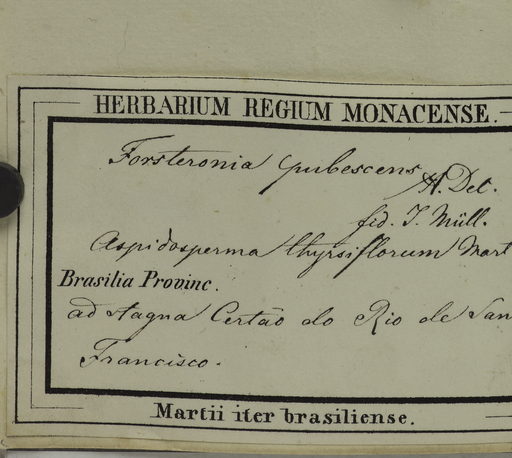 HERBARIUM REGIUM MONACENSE.
Forsteronia pubescens A. Det.
fid. J. Müll.
Aspidosperma thyrsiflorum Mart
Brasilia Provinc.
ad stagna Certão do Rio de San
Francisco.
Martii iter brasiliense.